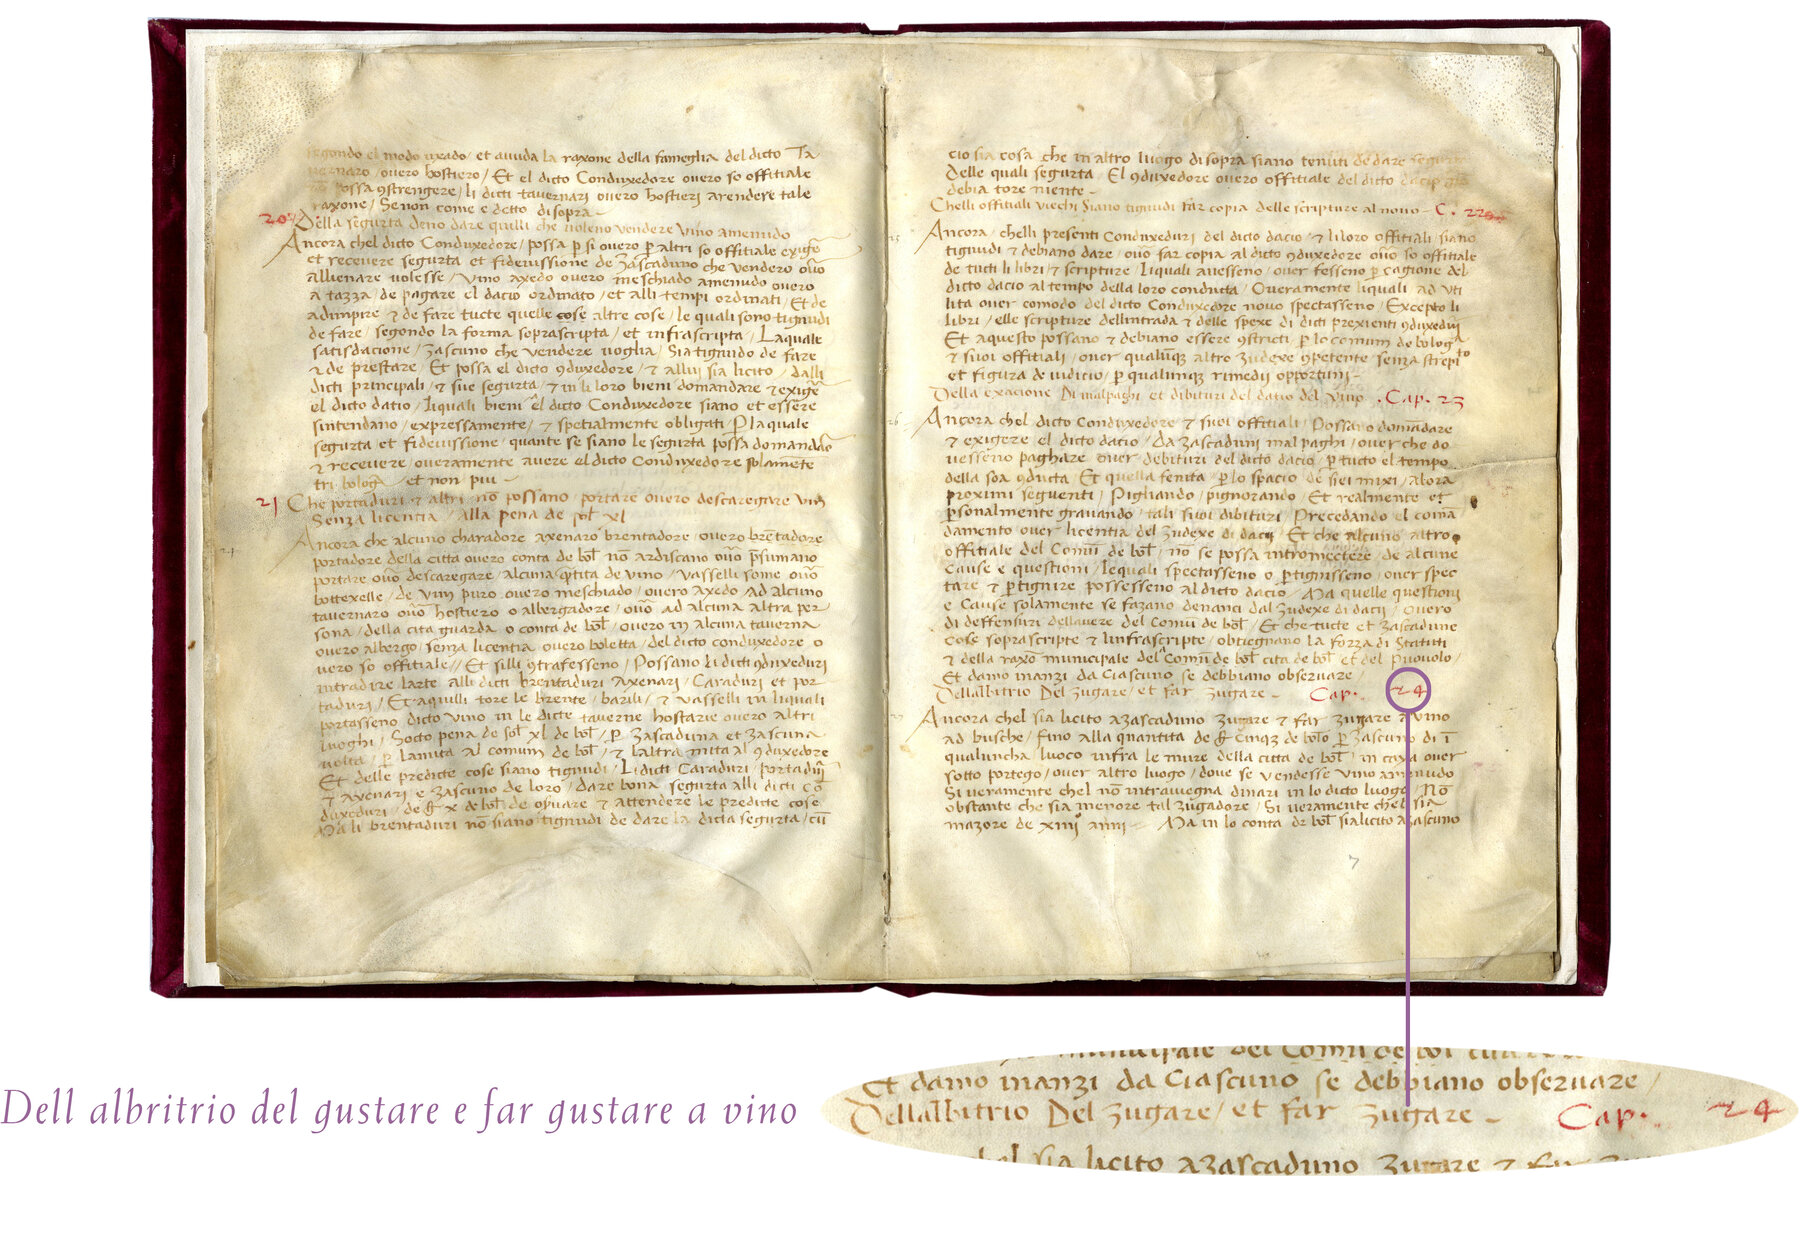 segondo el modo uxado / et auuda la raxone della fameglia del dicto Ta
uernaro ouero hostiero / Et el dicto Conduxedore ouero so offitiale
possa 9strengere / li dicti tauernari ouero hostieri arendere tale
raxone / Se non come e detto di sopra –
20 Della segurta deno dare quilli che uoleno vendere Vino amenudo
Ancora chel dicto Conduxedore / possa p si ouero p altri so offitiale exige
et receuere segurta et fideiussione de Zascaduno che vendero
alluenare uolesse / Vino axedo ouero meschiado amenudo ouero
a tazza / de pagare el dacio ordinato / et alli tempi ordinati / Et de
adimpire ⁊ de fare tucte quelle cose altre cose / le quali sono tignudi
de fare / segondo la forma soprascripta / et infrascripta / Laquale
satisdacione / Zascuno che vendere uoglia / Sia tignudo de fare
⁊ de prestare / Et possa el dicto 9duxedore / ⁊ allui sia licito / dalli
dicti principali / ⁊ sue segurta / ⁊ in li loro bieni domandare ⁊ exige
el dicto datio / liquali bieni el dicto Conduxedore siano et essere
sintendano / expressamente / ⁊ spetialmente obligati / P la quale
segurta et fideiussione / quante se siano le segurta possa domandare
⁊ receuere / oueramente auere el dicto Conduxedore solamente
tri bolog / et non piu –
21 Che portaduri ⁊ altri no possano / portare ouero descaregare Vin
Senza licentia / alla pena de sol xl
Ancora che alcuno charadore axenaro brentadore / ouero brentadore
portadore della citta ouero conta de bol no ardiscano ouo psumano
portare ouo descaregare / alcuna qtita de vino / Vasselli some ouo
bottexelle / de Vin puro ouero meschiado / ouero axedo / ad alcuno
tauernaro ouo hostiero o albergadore / ouo ad alcuna altra per
sona / della cita guarda o conta de bol / ouero in alcuna tauerna
ouero albergo / senza licentia ouero boletta / del dicto conduxedore o
uero so offitiale // Et silli 9trafesseno / Possano li dicti 9duxeduri
intradire larte alli dicti brentaduri / Axenari / Caraduri et por
taduri / Et aquilli tore le brente / barili / ⁊ Vasselli in liquali
portasseno dicto Vino in le dicte tauerne hostarie ouero altri
luoghi / Socto pena de sol xl de bol / p Zascaduna et Zascuna
uolta / p lamita al comun de bol / ⁊ laltra mita al 9duxedore
Et delle predicte cose siano tignudi / Li dicti Caraduri / portaduri
⁊ axenari e zascuno de loro / dare bona segurta alli dicti co
duxeduri / de x de bol / de opuare ⁊ attendere le predicte cose
Ma li brentaduri no siano tignudi de dare la dicta segurta / cu
cio sia cosa che in altro luogo di sopra siano tenuti de dare segurta
Delle quali segurta / El 9duxedore ouero offitiale del dicto dacio
debia tore niente –
Chelli offitiali uiechi Siano tignudi far copia delle scripture al nouo – C. 22
Ancora / chelli presenti Conduxeduri del dicto dacio / ⁊ li loro offitiali / siano
tignudi ⁊ debiano dare / ouo far copia al dicto 9duxedore ouo so offitiale
de tucti li libri / ⁊ scripture / liquali auesseno / ouer fesseno p cagione del
dicto dacio al tempo della loro conducta / Oueramente liquali ad uti
lita ouer comodo del dicto Conduxedore nouo spectasseno / Excepto li
libri / elle scripture dellintrada ⁊ delle spexe di dicti prexienti 9duxeduri
Et aquesto possano ⁊ debiano essere 9stricti p lo comun de bologa
⁊ suoi offitiali / ouer qualuq altro Zudexe 9petente senza strepito
et figura de iudicio / p qualunq rimedii opportuni –
Della exacione Di malpaghi et dibituri del datio del vino . Cap. 23
Ancora chel dicto Conduxedore ⁊ suoi offitiali / Possano domadare
⁊ exigere el dicto datio / da Zascaduni mal paghi / ouer che do
uesseno paghare ouer debituri del dicto dacio / p tucto el tempo
della soa 9ducta / Et quella fenita / p lo spacio de siei mixi / alora
proximi seguenti / Pigliando / pignorando / Et realmente et
psonalmente grauando / tali suoi dibituri / Precedando el coma
damento ouer licentia del Zudexe di dacii / Et che alcuno altro
offitiale del Comu de bol / no se possa intromectere / de alcune
cause e questioni / lequali spectasseno o ptignisseno / ouer spec
tare ⁊ ptignire possesseno al dicto dacio / Ma quelle questioni
e Cause solamente se fazano denanci dal Zudexe di dacii / Ouero
di deffensuri dellauere del Comu de bol / Et che tucte et Zascadune
Cose soprascripte ⁊ linfrascripte / obtiegnano la forza di Statuti
⁊ della raxo municipale del Comu de bol cita de bol et del Puouolo /
Et damo inanzi da Ciascuno se debbiano obseruare /
Dellalbitrio Del Zugare / et far Zugare – Cap. 24
Ancora chel sia licito a Zascaduno Zugare ⁊ far Zugare a Vino
ad busche / fino alla quantita de Cinq de bolo p Zascuno di i
qualuncha luoco infra le mure della citta de bol / in caxa ouer
sotto portego / ouer altro luogo / doue se vendesse Vino amenudo
Si ueramente chel no intrauegna dinari in lo dicto luogo / No
obstante che sia menore tal Zugadore / Si ueramente chel sia
mazore de xiiii anni – Ma in lo conta de bol sia licito a Zascuno
7
Dell albritrio del gustare e far gustare a vino
municipale del Comu de bol
Et damo inanzi da Ciascuno se debbiano obseruare /
Dellalbitrio Del Zugare / et far Zugare – Cap. 24
chel sia licito a Zascaduno Zugare ⁊ far